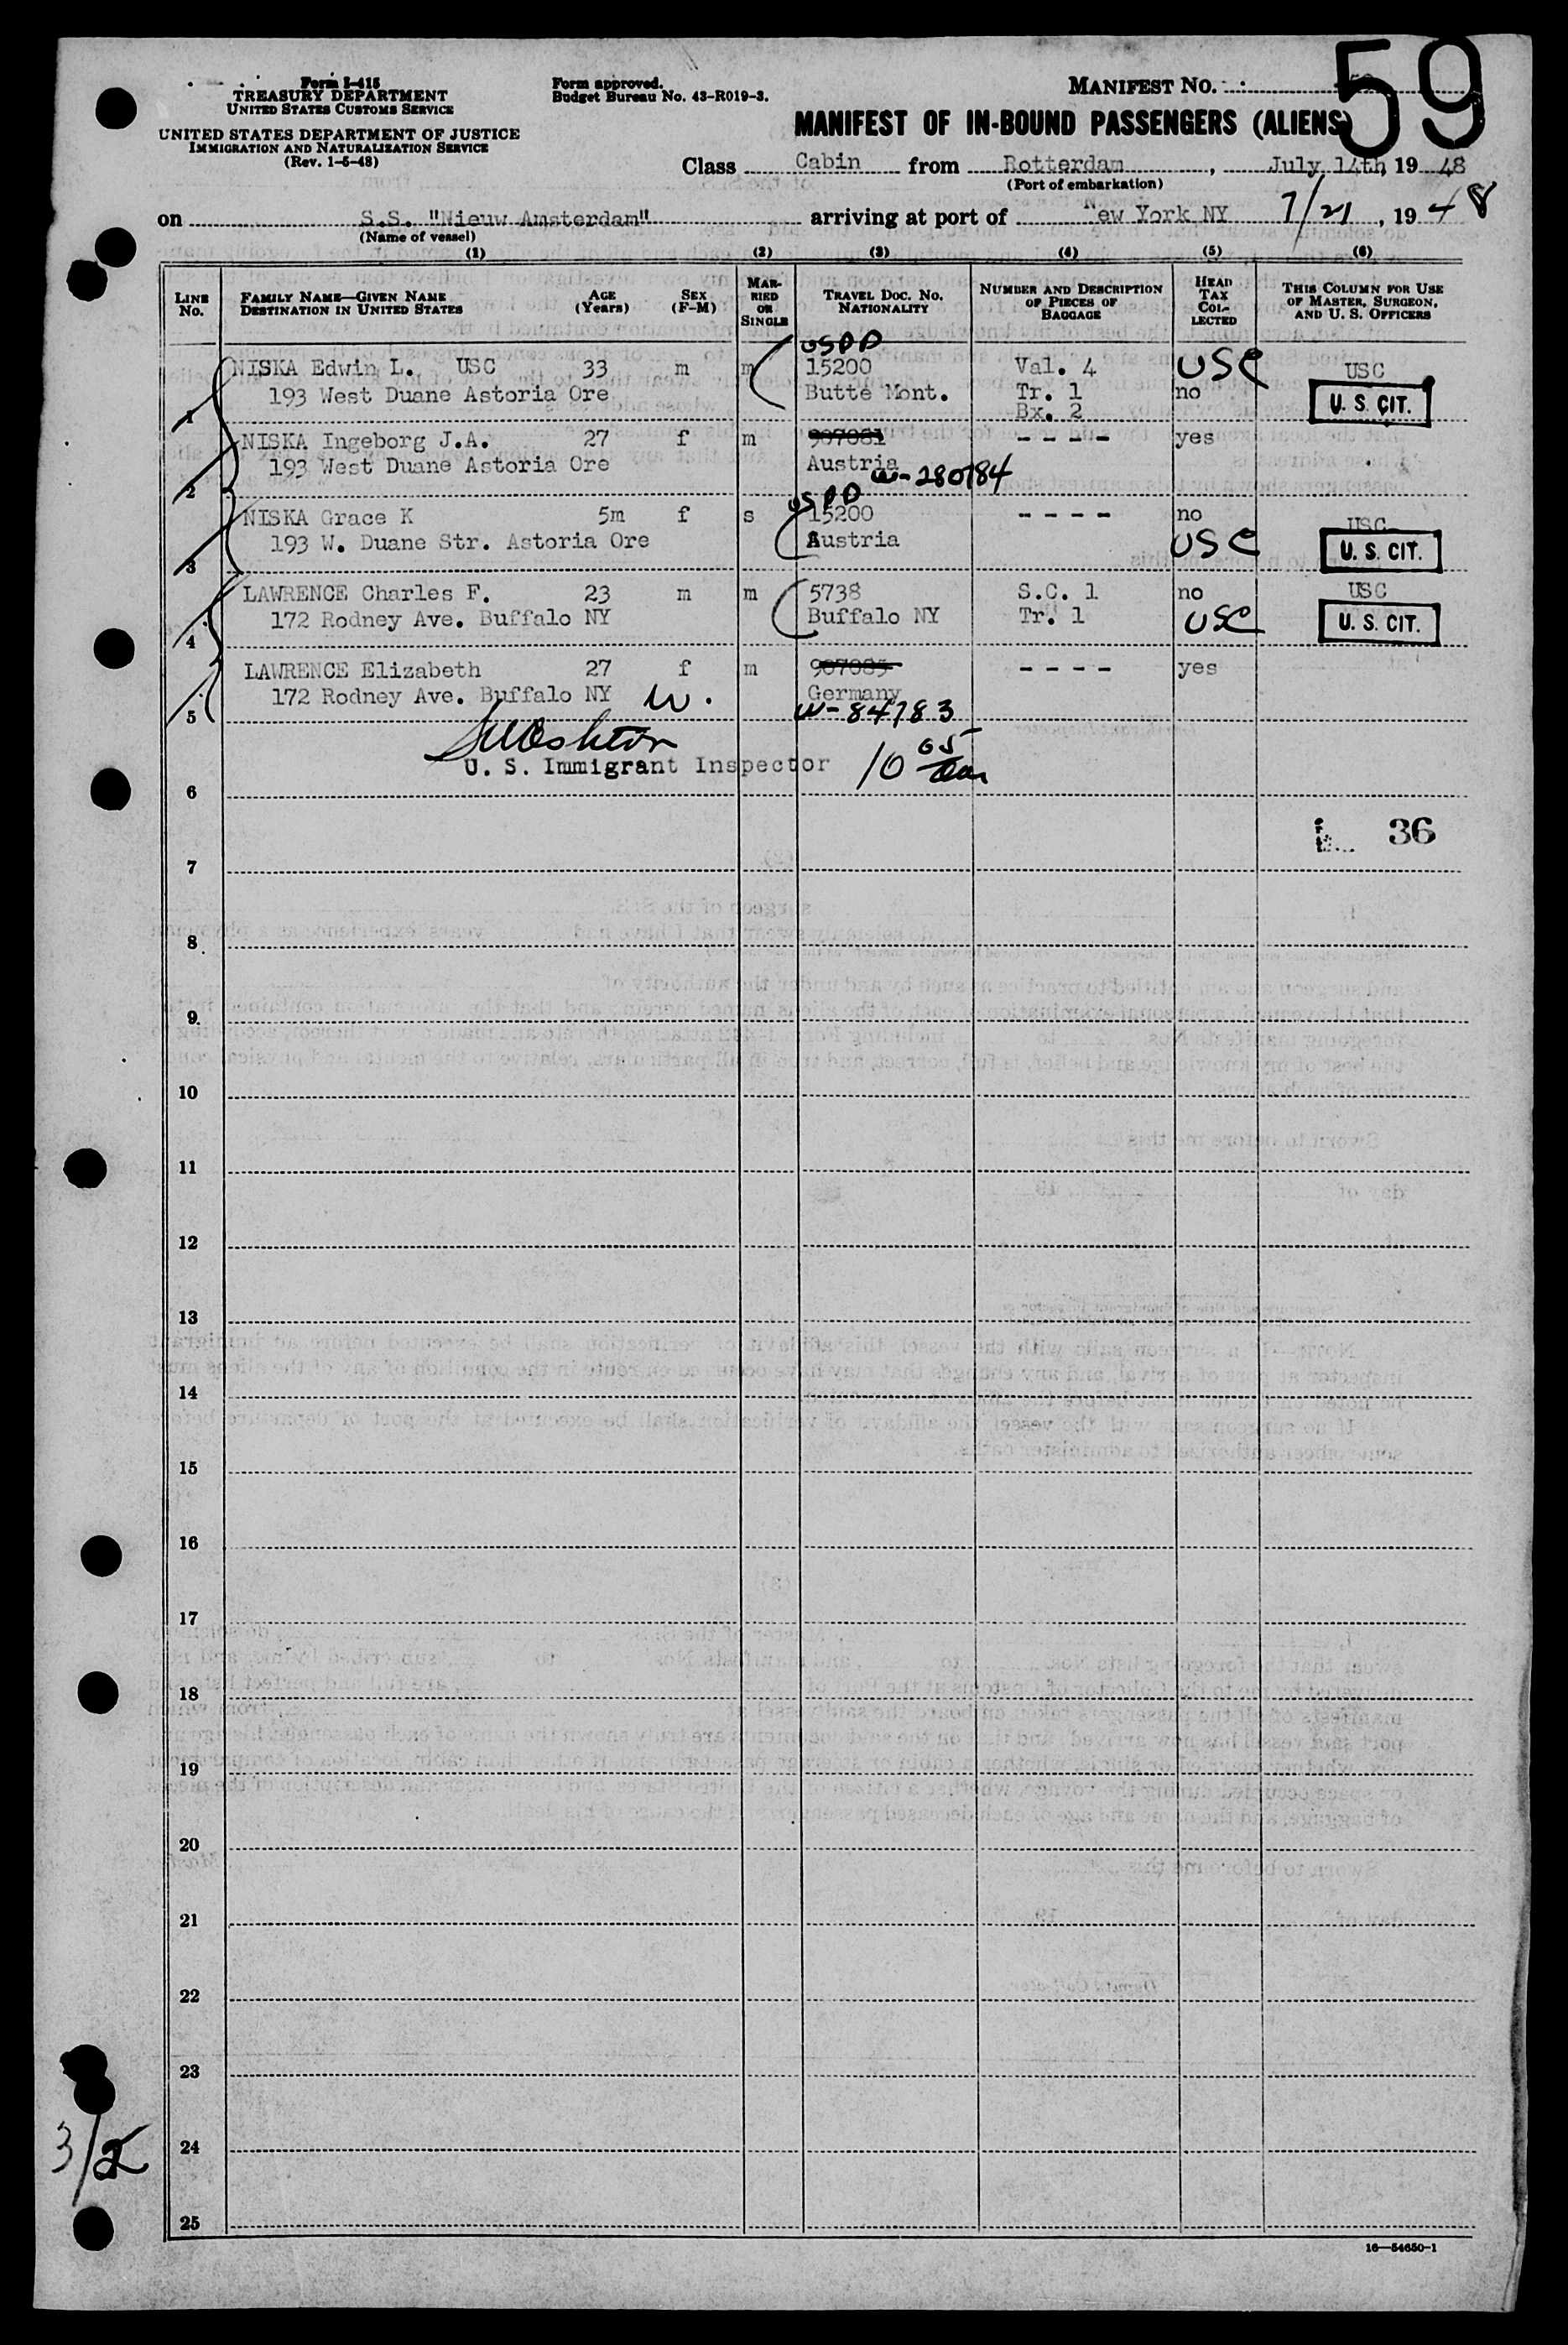 Form I-415
TREASURY DEPARTMENT
UNITED STATES CUSTOMS SERVICE
UNITED STATES DEPARTMENT OF JUSTICE
IMMIGRATION AND NATURALIZATION SERVICE
(Rev. 1-5-48)
Form approved.
Budget Bureau No. 43-R019-3.
MANIFEST NO.
59
MANIFEST OF IN-BOUND PASSENGERS (ALIENS)
Class Cabin from Rotterdam, July 14th, 19 48
(Port of embarkation)
on S.S. "Nieuw Amsterdam" arriving at port of New York NY 7/21, 19 48
(Name of vessel)
(1) (2) (3) (4) (5) (6)
LINE No. FAMILY NAME—GIVEN NAME DESTINATION IN UNITED STATES AGE (Years) SEX (F-M) MARRIED OR SINGLE TRAVEL DOC. NO. NATIONALITY NUMBER AND DESCRIPTION OF PIECES OF BAGGAGE HEAD TAX COLLECTED THIS COLUMN FOR USE OF MASTER, SURGEON, AND U. S. OFFICERS
USPP
NISKA Edwin L. USC 33 m m 15200 Val. 4 USC USC
193 West Duane Astoria Ore Butte Mont. Tr. 1 no U. S. CIT.
1 Bx. 2
NISKA Ingeborg J.A. 27 f m 907081 - - - - yes
193 West Duane Astoria Ore Austria
2 W-280184
USPP
NISKA Grace K 5m f s 15200 - - - - no USC
193 W. Duane Str. Astoria Ore Austria USC U. S. CIT.
3
LAWRENCE Charles F. 23 m m 5738 S.C. 1 no USC
172 Rodney Ave. Buffalo NY Buffalo NY Tr. 1 USC U. S. CIT.
4
LAWRENCE Elizabeth 27 f m 907085 - - - - yes
172 Rodney Ave. Buffalo NY W. Germany
5 W-84783
U. S. Immigrant Inspector 10 05
6
36
7
8
9
10
11
12
13
14
15
16
17
18
19
20
21
22
23
24
3/2
25
16—54650-1